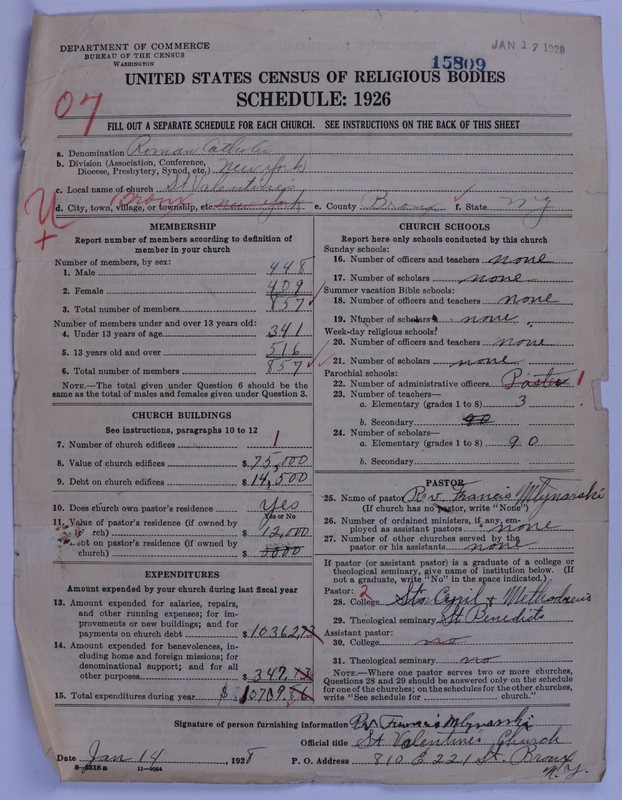 DEPARTMENT OF COMMERCE
BUREAU OF THE CENSUS
WASHINGTON
JAN 17 1928
15809
UNITED STATES CENSUS OF RELIGIOUS BODIES
SCHEDULE: 1926
07
FILL OUT A SEPARATE SCHEDULE FOR EACH CHURCH. SEE INSTRUCTIONS ON THE BACK OF THIS SHEET
a. Denomination Roman Catholic
b. Division (Association, Conference, Diocese, Presbytery, Synod, etc.) New York
c. Local name of church St Valentine's
d. City, town, village, or township, etc. Bronx New York e. County Bronx f. State N Y
MEMBERSHIP
Report number of members according to definition of member in your church
Number of members, by sex:
1. Male 448
2. Female 409
3. Total number of members 857
Number of members under and over 13 years old:
4. Under 13 years of age 341
5. 13 years old and over 516
6. Total number of members 857
NOTE.—The total given under Question 6 should be the same as the total of males and females given under Question 3.
CHURCH BUILDINGS
See instructions, paragraphs 10 to 12
7. Number of church edifices 1
8. Value of church edifices $ 75,000
9. Debt on church edifices $ 14,500
10. Does church own pastor's residence Yes
Yes or No
11. Value of pastor's residence (if owned by
rch) $ 12,000
ebt on pastor's residence (if owned by
church) $ 0000
EXPENDITURES
Amount expended by your church during last fiscal year
13. Amount expended for salaries, repairs, and other running expenses; for improvements or new buildings; and for payments on church debt $ 10362.
14. Amount expended for benevolences, including home and foreign missions; for denominational support; and for all other purposes $ 347.13
15. Total expenditures during year $ 10709.86
CHURCH SCHOOLS
Report here only schools conducted by this church
Sunday schools:
16. Number of officers and teachers none
17. Number of scholars none
Summer vacation Bible schools:
18. Number of officers and teachers none
19. Number of scholars none
Week-day religious schools:
20. Number of officers and teachers none
21. Number of scholars none
Parochial schools:
22. Number of administrative officers Pastor 1
23. Number of teachers—
a. Elementary (grades 1 to 8) 3
b. Secondary 90
24. Number of scholars—
a. Elementary (grades 1 to 8) 90
b. Secondary
PASTOR
25. Name of pastor Rev. Francis Mlynarski
(If church has no pastor, write "None")
26. Number of ordained ministers, if any, employed as assistant pastors none
27. Number of other churches served by the pastor or his assistants none
If pastor (or assistant pastor) is a graduate of a college or theological seminary, give name of institution below. (If not a graduate, write "No" in the space indicated.)
Pastor: 2
28. College Sts. Cyril & Methodius
29. Theological seminary St. Benedicts
Assistant pastor:
30. College no
31. Theological seminary no
NOTE.—Where one pastor serves two or more churches, Questions 28 and 29 should be answered only on the schedule for one of the churches; on the schedules for the other churches, write "See schedule for church."
Signature of person furnishing information Rev. Francis Mlynarski
Official title St Valentine's Church
Date Jan 14, 1928 P. O. Address 810 E 221 St. Bronx
N.Y.
8—5318a 11—9024